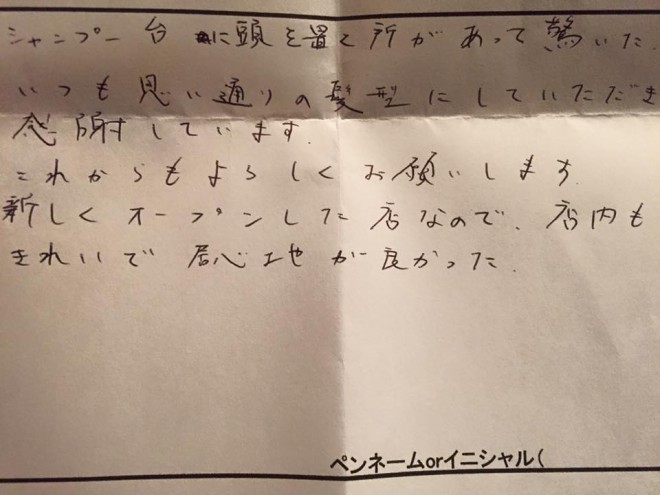 シャンプー台に頭を置く所があって驚いた.
いつも思い通りの髪型にしていただき
感謝しています.
これからもよろしくお願いします.
新しくオープンした店なので、店内も
きれいで居心地が良かった.
ペンネームorイニシャル(